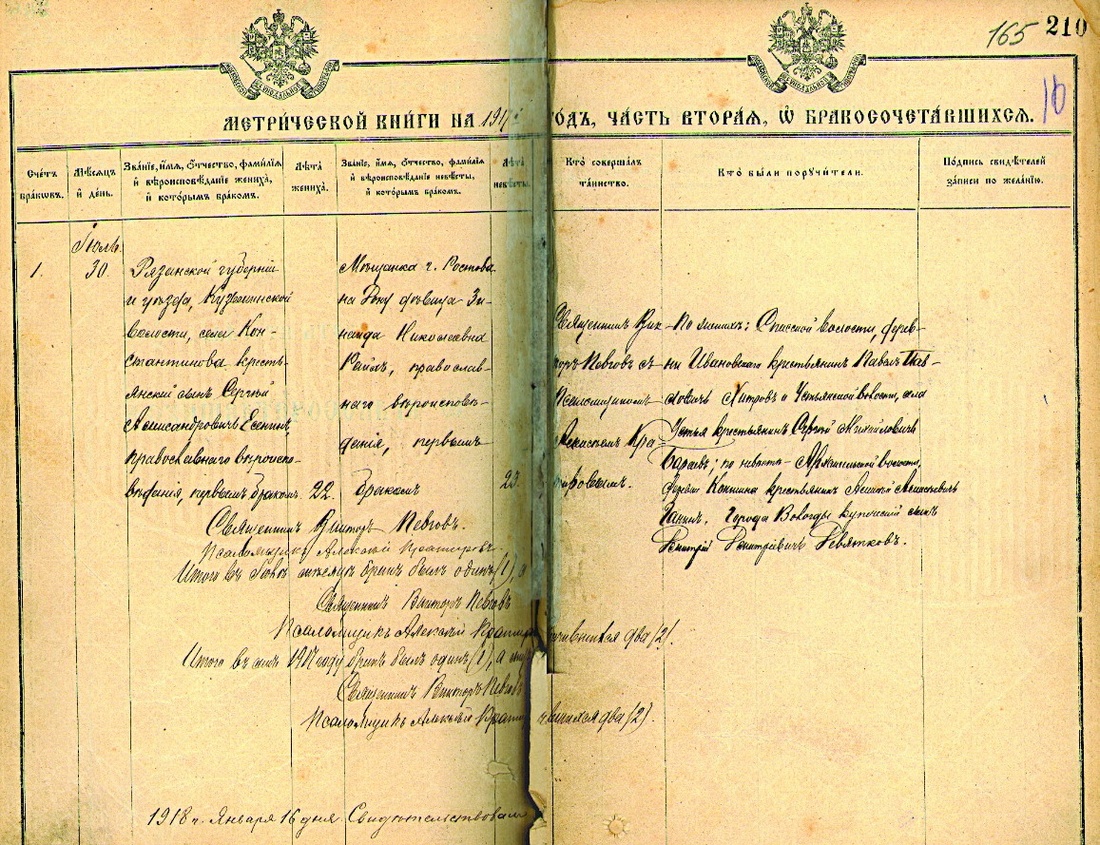 165 210
10
МЕТРИ́ЧЕСКОЙ КНИ́ГИ НА 1917 ГОДЪ, ЧА́СТЬ ВТОРА́Я, Ѿ БРАКОСОЧЕТА́ВШИХСЯ.
Сче́тъ бра́кѡвъ.
Мѣ́сяцъ и҆ де́нь.
Зва́нїе, и҆́мя, ѻ҆́тчество, фами́лїя и҆ вѣроисповѣ́данїе жениха̀, и҆ кото́рымъ бра́комъ.
Лѣ́та жениха̀.
Зва́нїе, и҆́мя, ѻ҆́тчество, фами́лїя и҆ вѣроисповѣ́данїе невѣ́сты, и҆ кото́рымъ бра́комъ.
Лѣ́та невѣ́сты.
Кто̀ соверша́лъ та́инство.
Кто̀ бы́ли пору́чители.
По́дпись свидѣ́телей за́писи по жела́нїю.
Іюль.
1.
30.
Рязанской губерніи
и уѣзда, Кузьминской
волости, села Кон-
стантинова кресть-
янскій сынъ Сергѣй
Александровичъ Есенинъ,
православнаго вѣроиспо-
вѣданія, первымъ бракомъ.
22.
Мѣщанка г. Ростова
на Дону дѣвица Зи-
наида Николаевна
Райхъ, православ-
наго вѣроисповѣ-
данія, первымъ
бракомъ
23.
Священникъ Вик-
торъ Пѣвговъ съ
Псаломщикомъ
Алексѣемъ Кра-
тировымъ.
По женихѣ: Спасской волости, дерев-
ни Ивановской крестьянинъ Павелъ Пав-
ловичъ Хитровъ и Устьянской волости, села
Устья крестьянинъ Сергѣй Михайловичъ
Бараевъ; по невѣстѣ – Архангельской волости,
деревни Коншина крестьянинъ Алексѣй Алексѣевичъ
Ганинъ, города Вологды купеческій сынъ
Дмитрій Дмитріевичъ Девятковъ.
Священникъ Викторъ Пѣвговъ.
Псаломщикъ Алексѣй Кратировъ.
Итого въ Іюлѣ мѣсяцѣ бракъ былъ одинъ (1), а
Священникъ Викторъ Пѣвговъ
Псаломщикъ Алексѣй Кратировъ
два (2).
Итого въ семъ 1917 году бракъ былъ одинъ (1), а
Священникъ Викторъ Пѣвговъ
Псаломщикъ Алексѣй
два (2).
1918 г. Января 16 дня Свидѣтельствовалъ